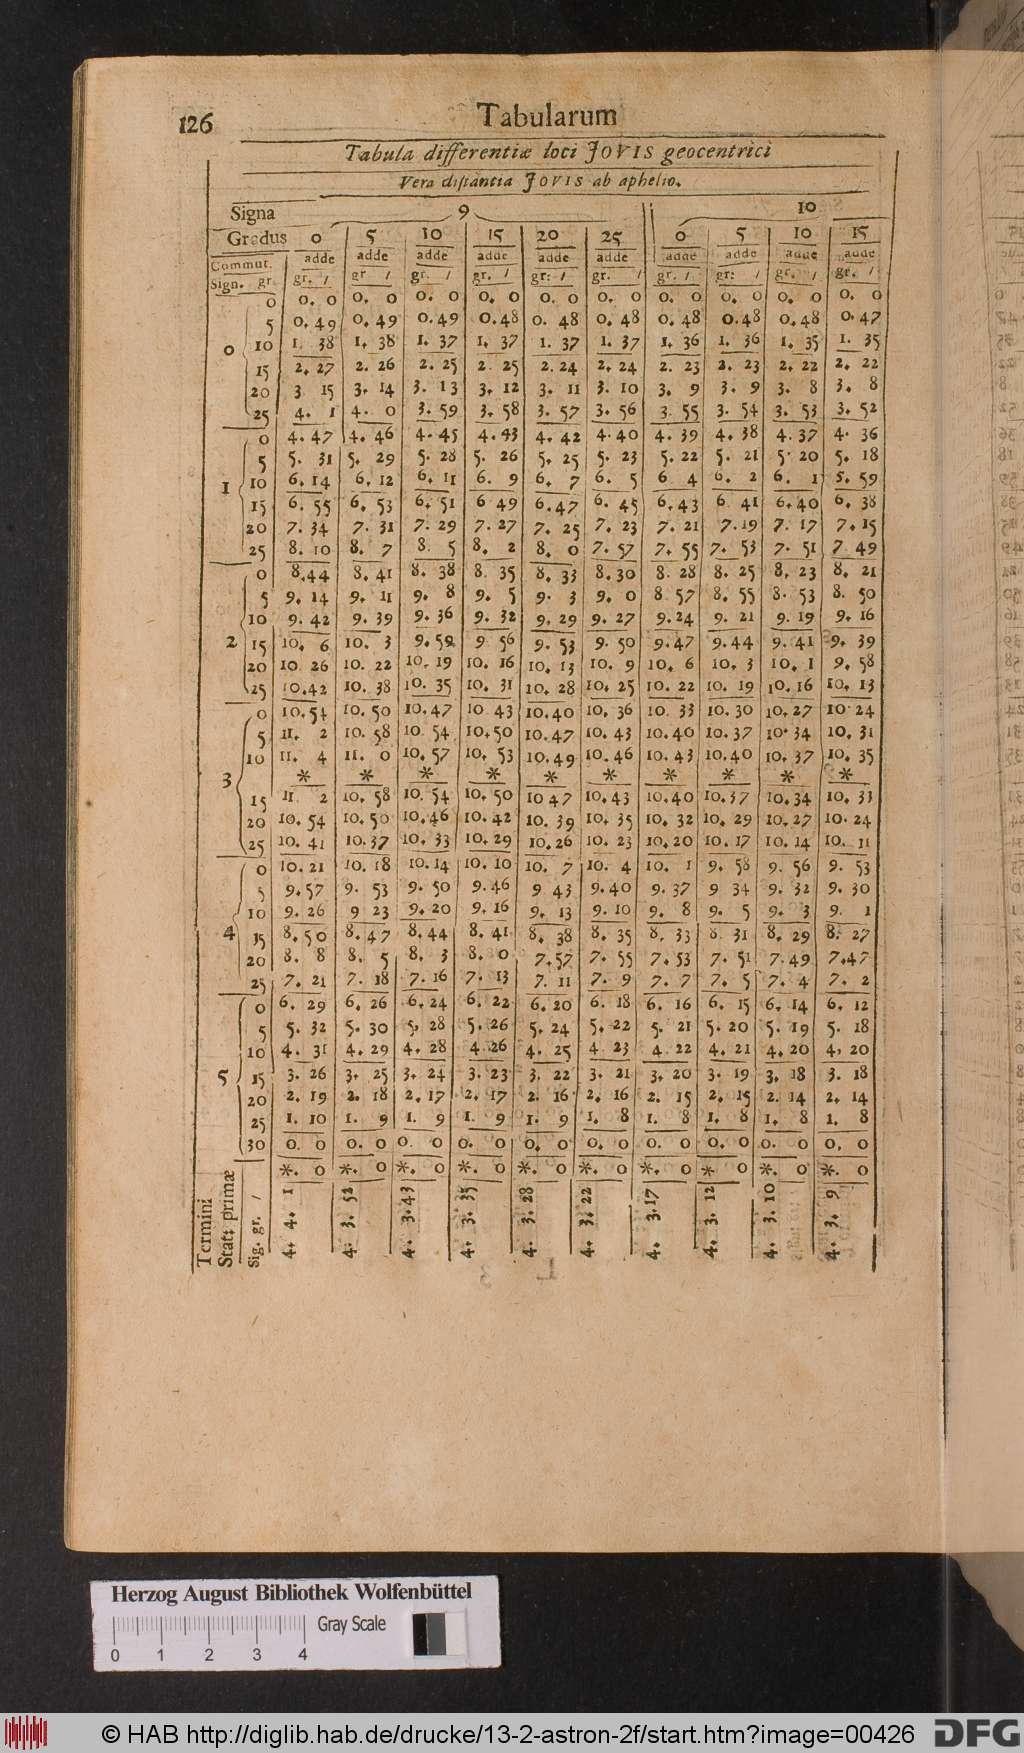 126 Tabularum
Tabula differentiæ loci JOVIS geocentrici
Vera distantia JOVIS ab aphelio.
Signa 9 10
Gradus 0 5 10 15 20 25 0 5 10 15
Commut. adde adde adde adde adde adde adde adde adde adde
Sign. gr. gr. / gr / gr. / gr. / gr: / gr. / gr. / gr: / gr. / gr. /
0 0. 0 0. 0 0. 0 0. 0 0. 0 0. 0 0. 0 0. 0 0. 0 0. 0
5 0. 49 0. 49 0. 49 0. 48 0. 48 0. 48 0. 48 0. 48 0. 48 0. 47
0 10 1. 38 1. 38 1. 37 1. 37 1. 37 1. 37 1. 36 1. 36 1. 35 1. 35
15 2. 27 2. 26 2. 25 2. 25 2. 24 2. 24 2. 23 2. 23 2. 22 2. 22
20 3 15 3. 14 3. 13 3. 12 3. 11 3. 10 3. 9 3. 9 3. 8 3. 8
25 4. 1 4. 0 3. 59 3. 58 3. 57 3. 56 3 55 3. 54 3. 53 3. 52
0 4. 47 4. 46 4. 45 4. 43 4. 42 4. 40 4. 39 4. 38 4. 37 4. 36
5 5. 31 5. 29 5. 28 5. 26 5. 25 5. 23 5. 22 5. 21 5. 20 5. 18
1 10 6. 14 6. 12 6. 11 6. 9 6. 7 6. 5 6 4 6. 2 6. 1 5. 59
15 6. 55 6. 53 6. 51 6 49 6. 47 6. 45 6. 43 6 41 6. 40 6. 38
20 7. 34 7. 31 7. 29 7. 27 7. 25 7. 23 7. 21 7. 19 7. 17 7. 15
25 8. 10 8. 7 8. 5 8. 2 8. 0 7. 57 7. 55 7. 53 7. 51 7 49
0 8. 44 8. 41 8. 38 8. 35 8. 33 8. 30 8. 28 8. 25 8. 23 8. 21
5 9. 14 9. 11 9. 8 9. 5 9. 3 9. 0 8 57 8. 55 8. 53 8. 50
10 9. 42 9. 39 9. 36 9. 32 9. 29 9. 27 9. 24 9. 21 9. 19 9. 16
2 15 10. 6 10. 3 9. 59 9 56 9. 53 9. 50 9. 47 9. 44 9. 41 9. 39
20 10 26 10. 22 10. 19 10. 16 10. 13 10. 9 10. 6 10. 3 10. 1 9. 58
25 10. 42 10. 38 10. 35 10. 31 10. 28 10. 25 10. 22 10. 19 10. 16 10. 13
0 10. 54 10. 50 10. 47 10 43 10. 40 10. 36 10. 33 10. 30 10. 27 10. 24
5 11. 2 10. 58 10. 54 10. 50 10. 47 10. 43 10. 40 10. 37 10. 34 10. 31
10 11. 4 11. 0 10. 57 10. 53 10. 49 10. 46 10. 43 10. 40 10. 37 10. 35
3 * * * * * * * * * *
15 11 2 10. 58 10. 54 10. 50 10 47 10. 43 10. 40 10. 37 10. 34 10. 33
20 10. 54 10. 50 10. 46 10. 42 10. 39 10. 35 10. 32 10. 29 10. 27 10. 24
25 10. 41 10. 37 10. 33 10. 29 10. 26 10. 23 10. 20 10. 17 10. 14 10. 11
0 10. 21 10. 18 10. 14 10. 10 10. 7 10. 4 10. 1 9. 58 9. 56 9. 53
5 9. 57 9. 53 9. 50 9. 46 9 43 9. 40 9. 37 9 34 9. 32 9. 30
10 9. 26 9 23 9. 20 9. 16 9. 13 9. 10 9. 8 9. 5 9. 3 9. 1
4 15 8. 50 8. 47 8. 44 8. 41 8. 38 8. 35 8. 33 8. 31 8. 29 8. 27
20 8. 8 8. 5 8. 3 8. 0 7. 57 7. 55 7. 53 7. 51 7. 49 7. 47
25 7. 21 7. 18 7. 16 7. 13 7. 11 7. 9 7. 7 7. 5 7. 4 7. 2
0 6. 29 6. 26 6. 24 6. 22 6. 20 6. 18 6. 16 6. 15 6. 14 6. 12
5 5. 32 5. 30 5. 28 5. 26 5. 24 5. 22 5. 21 5. 20 5. 19 5. 18
10 4. 31 4. 29 4. 28 4. 26 4. 25 4 23 4 22 4. 21 4. 20 4. 20
5 15 3. 26 3. 25 3. 24 3. 23 3. 22 3. 21 3. 20 3. 19 3. 18 3. 18
20 2. 19 2. 18 2. 17 2. 17 2. 16 2. 16 2. 15 2. 15 2. 14 2. 14
25 1. 10 1. 9 1. 9 1. 9 1. 9 1. 8 1. 8 1. 8 1. 8 1. 8
30 0. 0 0. 0 0. 0 0. 0 0. 0 0. 0 0. 0 0. 0 0. 0 0. 0
*. 0 *. 0 *. 0 *. 0 *. 0 *. 0 *. 0 * 0 *. 0 *. 0
Termini
Stat: primæ
Sig. gr. /
4. 4. 1
4. 3. 52
4. 3. 43
4. 3. 35
4. 3. 28
4. 3. 22
4. 3. 17
4. 3. 12
4. 3. 10
4. 3. 9
Herzog August Bibliothek Wolfenbüttel
Gray Scale
0 1 2 3 4
© HAB http://diglib.hab.de/drucke/13-2-astron-2f/start.htm?image=00426 DFG